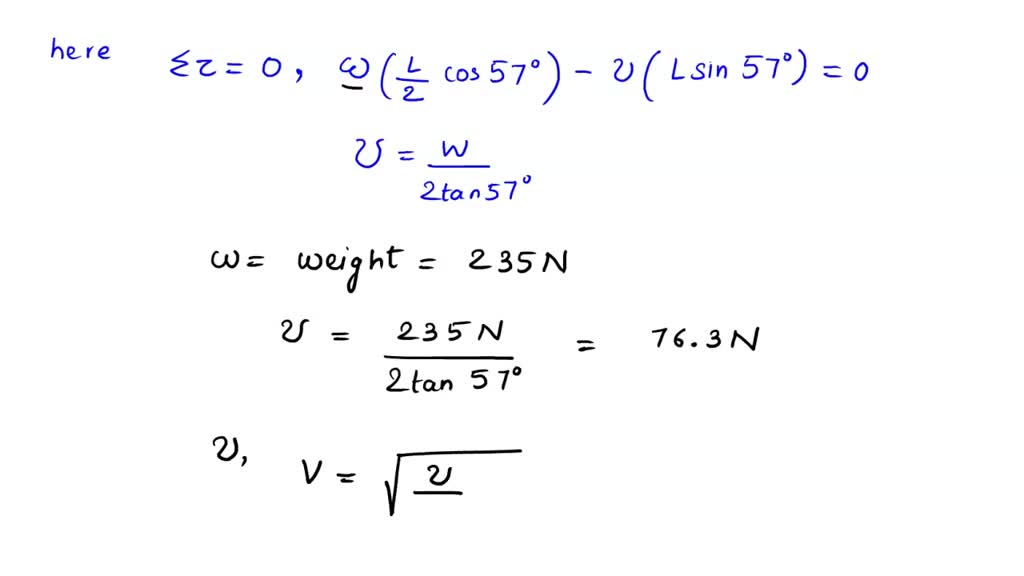 here Στ = 0, ω(L/2 cos 57°) - υ(L sin 57°) = 0
υ = W / 2tan 57°
ω = weight = 235 N
υ = 235 N / 2tan 57° = 76.3 N
υ, V = √υ